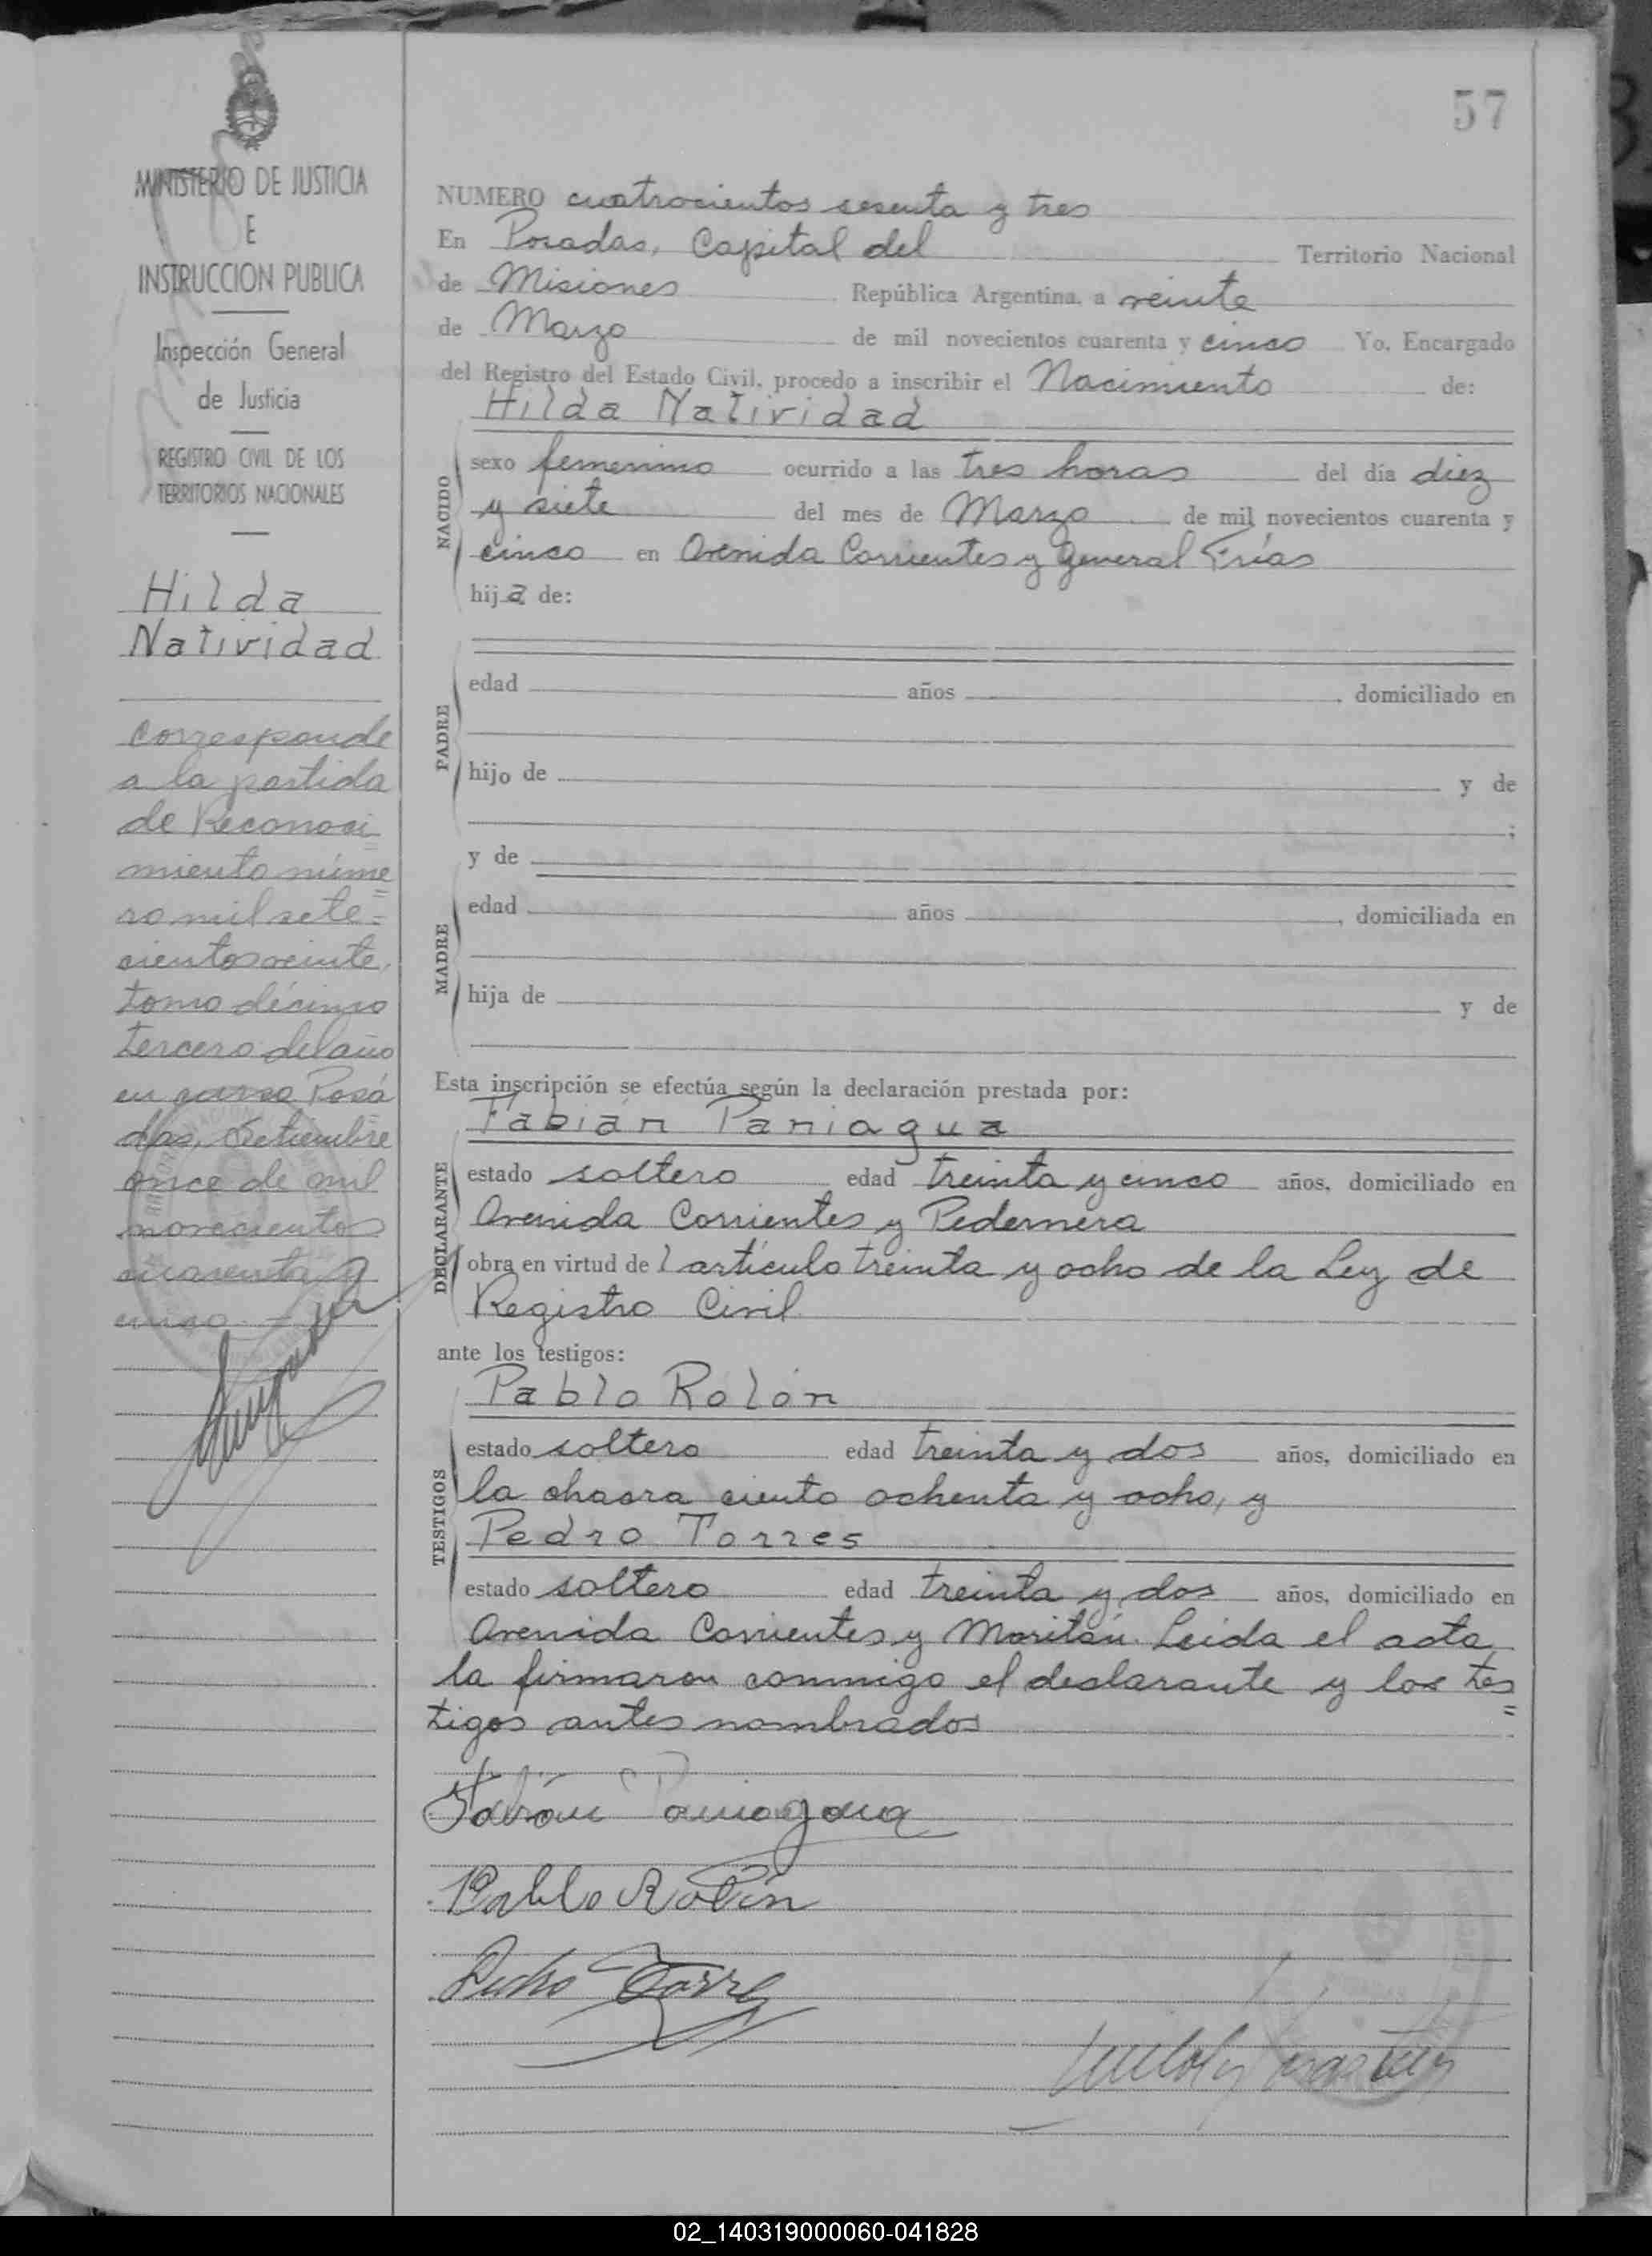 57
MINISTERIO DE JUSTICIA
E
INSTRUCCION PUBLICA
Inspección General
de Justicia
REGISTRO CIVIL DE LOS
TERRITORIOS NACIONALES
Hilda
Natividad
Corresponde
a la partida
de Reconoci
miento núme
ro mil sete=
cientos veinte,
tomo décimo
tercero del año
en curso Posa
das, Setiembre
once de mil
novecientos
cuarenta y
cinco.-
NUMERO cuatrocientos sesenta y tres
En Posadas, Capital del Territorio Nacional
de Misiones República Argentina, a veinte
de Marzo de mil novecientos cuarenta y cinco Yo, Encargado
del Registro del Estado Civil, procedo a inscribir el Nacimiento de:
Hilda Natividad
NACIDO
sexo femenino ocurrido a las tres horas del día diez
y siete del mes de Marzo de mil novecientos cuarenta y
cinco en Avenida Corrientes y General Frías
hija de:
PADRE
edad años , domiciliado en
hijo de y de
;
y de
MADRE
edad años , domiciliada en
hija de y de
Esta inscripción se efectúa según la declaración prestada por:
Fabián Paniagua
DECLARANTE
estado soltero edad treinta y cinco años, domiciliado en
Avenida Corrientes y Pedernera
obra en virtud del artículo treinta y ocho de la Ley de
Registro Civil
ante los testigos:
Pablo Rolón
TESTIGOS
estado soltero edad treinta y dos años, domiciliado en
la chacra ciento ochenta y ocho, y
Pedro Torres
estado soltero edad treinta y dos años, domiciliado en
Avenida Corrientes y Moritán. Leída el acta
la firmaron conmigo el declarante y los tes
=
tigos antes nombrados
Fabián Paniagua
Pablo Rolón
Pedro Torres
02_140319000060-041828